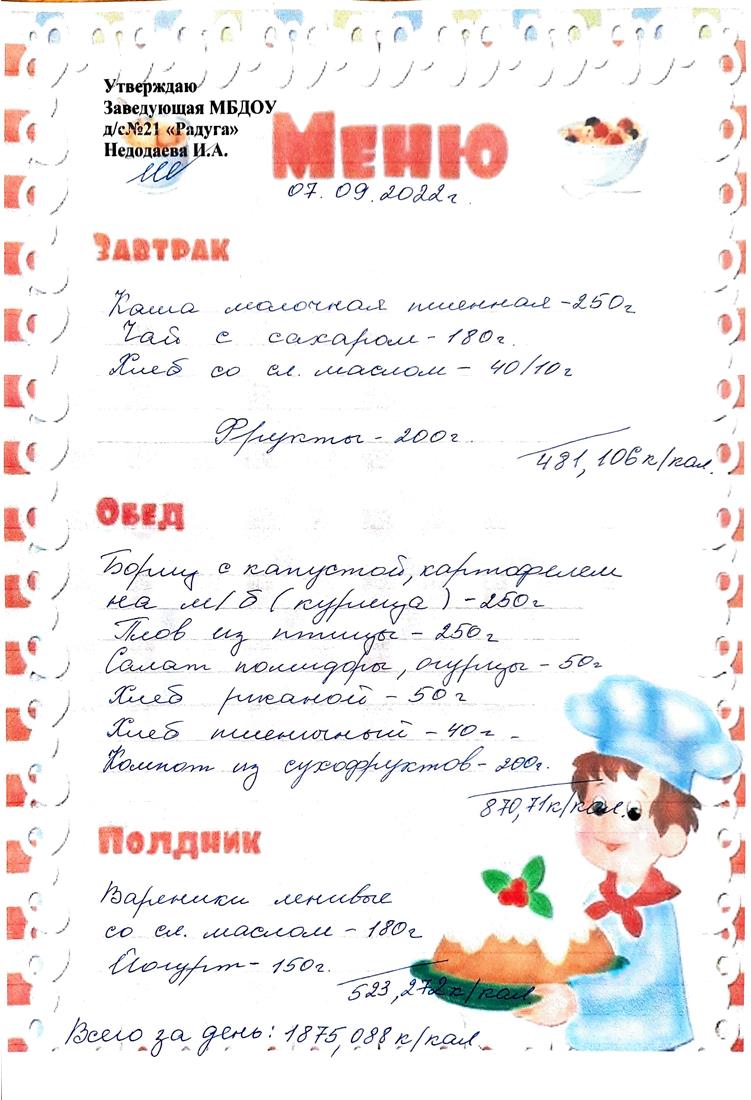 Утверждаю
Заведующая МБДОУ
д/с№21 «Радуга»
Недодаева И.А.
Меню
07.09.2022г.
Завтрак
Каша молочная пшенная-250г
Чай с сахаром-180г.
Хлеб со сл. маслом - 40/10г
Фрукты-200г.
481,106к/кал.
Обед
Борщ с капустой, картофелем
на м/б (курица)-250г
Плов из птицы-250г
Салат помидоры, огурцы-50г
Хлеб ржаной-50г
Хлеб пшеничный-40г-
Компот из сухофруктов-200г.
870,71к/кал.
Полдник
Вареники ленивые
со сл. маслом-180г
Йогурт-150г.
523,272к/кал
Всего за день: 1875,088к/кал.